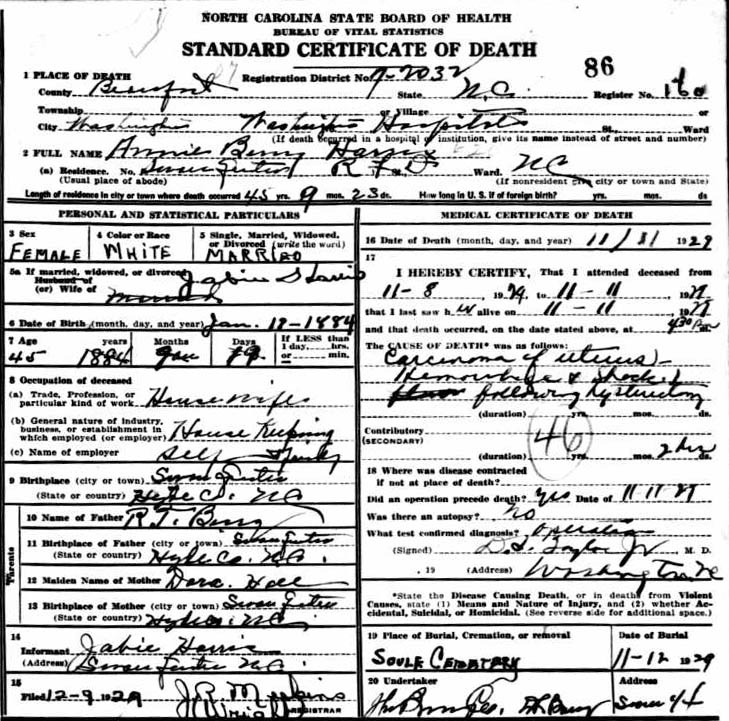 NORTH CAROLINA STATE BOARD OF HEALTH
BUREAU OF VITAL STATISTICS
STANDARD CERTIFICATE OF DEATH
86
1 PLACE OF DEATH
Registration District No. 9-7032
County Beaufort State N.C. Register No. 160
Township or Village or
City Washington Washington Hospital St., Ward
(If death occurred in a hospital or institution, give its name instead of street and number)
2 FULL NAME Annie Berry Harris
(a) Residence. No. Swan Quarter R F D St., Ward. NC
(Usual place of abode) (If nonresident city or town and State)
Length of residence in city or town where death occurred 45 yrs. 9 mos. 23 ds. How long in U. S. if of foreign birth? yrs. mos. ds
PERSONAL AND STATISTICAL PARTICULARS
3 Sex 4 Color or Race 5 Single, Married, Widowed, or Divorced (write the word)
FEMALE WHITE MARRIED
5a If married, widowed, or divorced
Husband of
(or) Wife of Jabie S Harris
6 Date of Birth (month, day, and year) Jan. 18-1884
7 Age years Months Days If LESS than 1 day, hrs. or min.
45 1884 Jan
8 Occupation of deceased
(a) Trade, Profession, or particular kind of work House wife
(b) General nature of industry, business, or establishment in which employed (or employer) House Keeping
(c) Name of employer Self
9 Birthplace (city or town) Swan Quarter
(State or country) Hyde Co. NC
Parents
10 Name of Father R. T. Berry
11 Birthplace of Father (city or town) Swan Quarter
(State or country) Hyde Co. N.C.
12 Maiden Name of Mother Dora
13 Birthplace of Mother (city or town) Swan Quarter
(State or country) Hyde Co. NC
14
Informant Jabie Harris
(Address) Swan Quarter NC
15
Filed 12-9 1929
REGISTRAR
MEDICAL CERTIFICATE OF DEATH
16 Date of Death (month, day, and year) 11/ 1929
17
I HEREBY CERTIFY, That I attended deceased from
11-8, 1929, to 11-11, 1929
that I last saw her alive on 11-11, 1929
and that death occurred, on the date stated above, at 430 Pm
The CAUSE OF DEATH* was as follows:
Carcinoma of uterus -
Hemorrhage & Shock
following hysterectomy
(duration) yrs. mos. ds.
Contributory
(SECONDARY)
46
(duration) yrs. mos. 2 hrs
18 Where was disease contracted
if not at place of death?
Did an operation precede death? Yes Date of 11-11-29
Was there an autopsy? No
What test confirmed diagnosis? Operation
(Signed) D. T. Tayloe Jr, M. D.
, 19 (Address) Washington NC
*State the Disease Causing Death, or in deaths from Violent
Causes, state (1) Means and Nature of Injury, and (2) whether Ac-
cidental, Suicidal, or Homicidal. (See reverse side for additional space.)
19 Place of Burial, Cremation, or removal Date of Burial
SOULE CEMETERY 11-12 1929
20 Undertaker Address